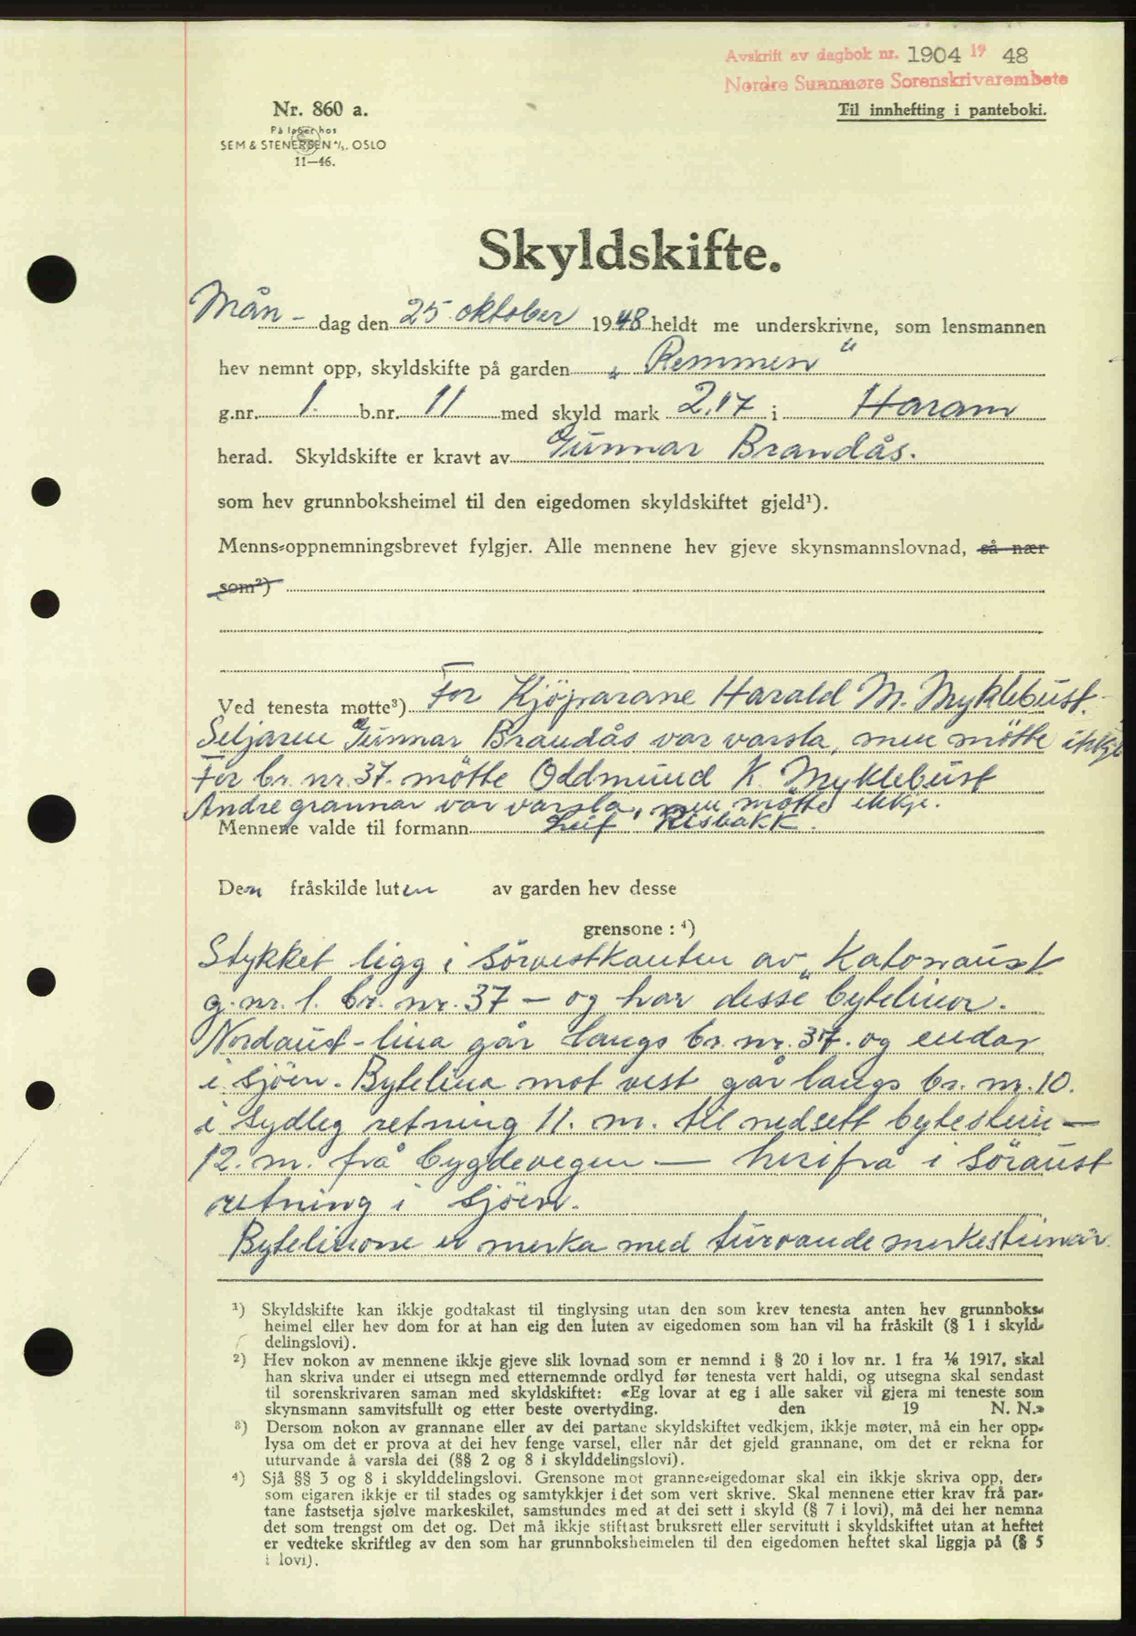 Avskrift av dagbok nr. 1904 19 48
Nordre Sunnmøre Sorenskrivarembete
Nr. 860 a.
Til innhefting i panteboki.
På lager hos
SEM & STENERSEN A/S, OSLO
11—46.
Skyldskifte.
Mån- dag den 25 oktober 1948 heldt me underskrivne, som lensmannen
hev nemnt opp, skyldskifte på garden „Remmen“
g.nr. 1. b.nr. 11 med skyld mark 2,17 i Haram
herad. Skyldskifte er kravt av Gunnar Brandås.
som hev grunnboksheimel til den eigedomen skyldskiftet gjeld¹).
Menns-oppnemningsbrevet fylgjer. Alle mennene hev gjeve skynsmannslovnad, så nær
som²)
Ved tenesta møtte³) For Kjöparane Harald M. Myklebust.
Seljaren Gunnar Brandås var varsla, men mötte ikkje
For br. nr. 37. mötte Oddmund K. Myklebust
Andre grannar var varsla, men mötte ikkje.
Mennene valde til formann Leif Risbakk.
Den fråskilde luten av garden hev desse
grensone : ⁴)
Stykket ligg i sörvestkanten av „Katonaust
g. nr. 1. br. nr. 37 — og har desse bytelinor.
Nordaust-lina går langs br. nr. 37. og endar
i sjöen. Bytelina mot vest går langs br. nr. 10.
i sydleg retning 11. m. til nedsett bytestein —
12. m. frå bygdevegen — herifrå i söraust
retning i sjöen.
Bytelinone er merka med turvande merkesteinar.
¹) Skyldskifte kan ikkje godtakast til tinglysing utan den som krev tenesta anten hev grunnboks-
heimel eller hev dom for at han eig den luten av eigedomen som han vil ha fråskilt (§ 1 i skyld-
delingslovi).
²) Hev nokon av mennene ikkje gjeve slik lovnad som er nemnd i § 20 i lov nr. 1 fra 1/6 1917, skal
han skriva under ei utsegn med etternemnde ordlyd før tenesta vert haldi, og utsegna skal sendast
til sorenskrivaren saman med skyldskiftet: «Eg lovar at eg i alle saker vil gjera mi teneste som
skynsmann samvitsfullt og etter beste overtyding. den 19 N. N.»
³) Dersom nokon av grannane eller av dei partane skyldskiftet vedkjem, ikkje møter, må ein her opp-
lysa om det er prova at dei hev fenge varsel, eller når det gjeld grannane, om det er rekna for
uturvande å varsla dei (§§ 2 og 8 i skylddelingslovi).
⁴) Sjå §§ 3 og 8 i skylddelingslovi. Grensone mot granne-eigedomar skal ein ikkje skriva opp, der-
som eigaren ikkje er til stades og samtykkjer i det som vert skrive. Skal mennene etter krav frå par-
tane fastsetja sjølve markeskilet, samstundes med at dei sett i skyld (§ 7 i lovi), må dei her nemna
det som trengst om det og. Det må ikkje stiftast bruksrett eller servitutt i skyldskiftet utan at heftet
er vedteke skriftleg av den som har grunnboksheimelen til den eigedomen heftet skal liggja på (§ 5
i lovi).